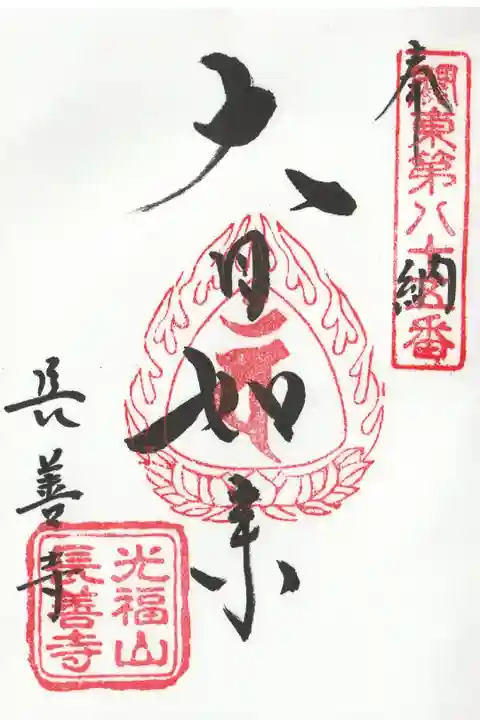 奉納
關東第八十番
大日如来
長善寺
光福山
長善寺